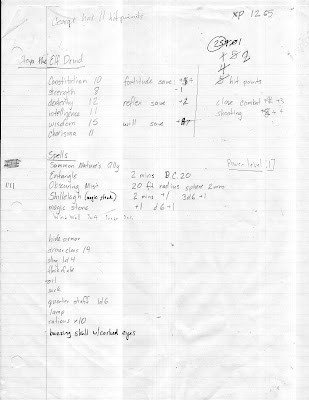 George has 11 hit points
XP 1265
the Elf Druid
Constitution 10 fortitude save
strength 8 -1
dexterity 12 reflex save +2
intelligence 11
wisdom 15 will save
charisma 11
hit points
close combat +3
shooting
Spells
Summon Nature's Ally
Power level: 17
Entangle 2 mins D.C. 20
Obscuring Mist 20 ft radius sphere 2 mins
Shillelagh (magic stick) 2 mins +1 3d6+1
magic stone +1 d6+1
hide armor
armor class 14
sling 1d4
oil
sack
quarter staff 1d6
lamp
rations x10
buzzing skull w/corked eyes